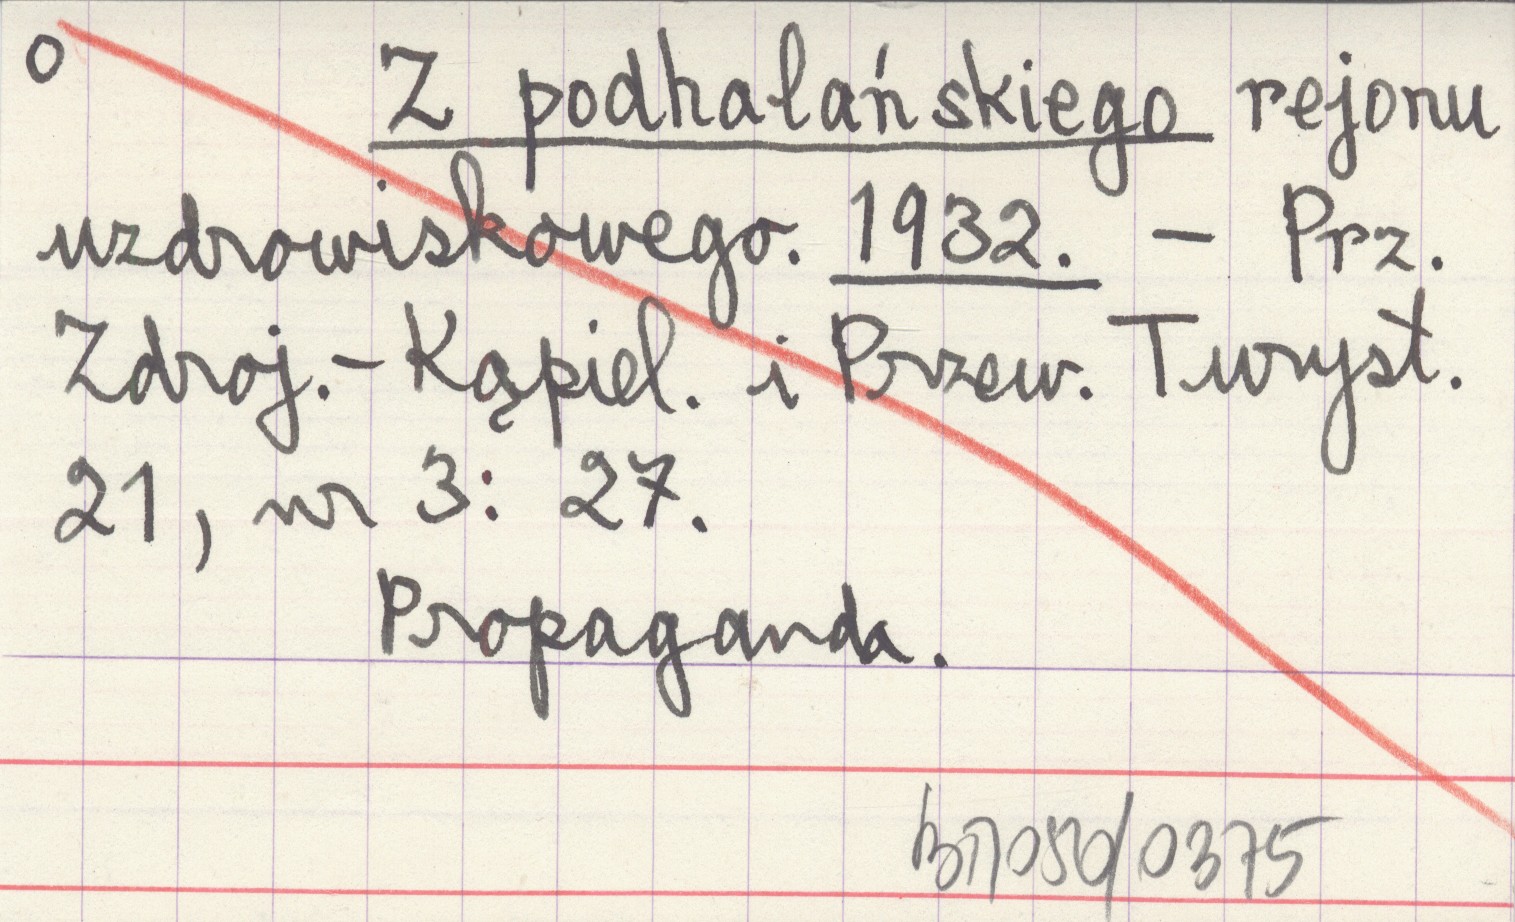 o Z podhalańskiego rejonu
uzdrowiskowego. 1932. - Prz.
Zdroj.-Kąpiel. i Przew. Turyst.
21, nr 3: 27.
Propaganda.
0375